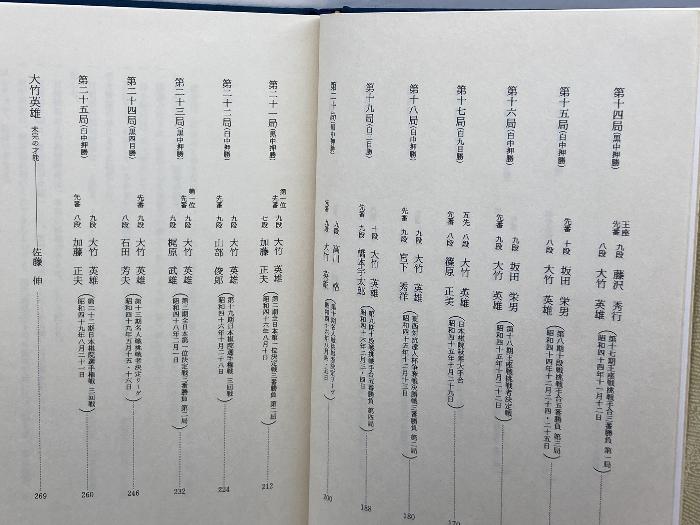 第十四局(黒中押勝)
王座 九段 藤沢 秀行
先番 八段 大竹 英雄
(第十七期王座戦挑戦手合三番勝負 第一局)
(昭和四十四年十一月十二日)
第十五局(白中押勝)
先番 十段 坂田 栄男
八段 大竹 英雄
(第八期十段戦挑戦手合五番勝負 第三局)
(昭和四十四年十二月二十四・二十五日)
第十六局(白中押勝)
九段 坂田 栄男
先番 九段 大竹 英雄
(第十八期王座戦挑戦者決定戦)
(昭和四十五年十月十二日)
第十七局(白九目勝)
互先 八段 大竹 英雄
先番 八段 篠原 正美
(日本棋院秋期大手合)
(昭和四十五年十月二十九日)
170
第十八局(白中押勝)
九段 大竹 英雄
先番 九段 宮下 秀洋
180
第十九局(白三目勝)
十段 大竹 英雄
先番 九段 橋本宇太郎
(第九期十段戦挑戦手合五番勝負 第四局)
188
第二十局
先番 九段 大竹 英雄
200
第二十一局(黒中押勝)
第一位 九段 大竹 英雄
先番 七段 加藤 正夫
(第二期全日本第一位決定戦三番勝負 第二局)
(昭和四十六年八月十日)
212
第二十二局(白中押勝)
九段 大竹 英雄
先番 九段 山部 俊郎
(第十九期日本棋院選手権戦 三回戦)
(昭和四十六年十月二十八日)
224
第二十三局(黒中押勝)
第一位 先番 九段 大竹 英雄
九段 梶原 武雄
(第三期全日本第一位決定戦三番勝負 第二局)
(昭和四十八年二月一日)
232
第二十四局(黒四目勝)
先番 九段 大竹 英雄
八段 石田 芳夫
(第十三期名人戦挑戦者決定リーグ)
(昭和四十九年五月十五・十六日)
246
第二十五局(白中押勝)
九段 大竹 英雄
先番 八段 加藤 正夫
(第二十二期日本棋院選手権戦 三回戦)
(昭和四十九年八月二十一日)
260
大竹英雄 未完の才能 佐藤 伸
269